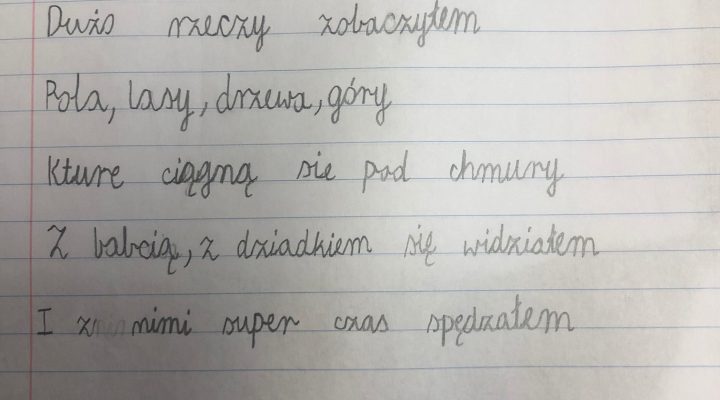 Dużo rzeczy zobaczyłem
Pola, lasy, drzewa, góry
Kture ciągną sie pod chmury
Z babcią, z dziadkiem się widziałem
I z nimi super czas spędzałem